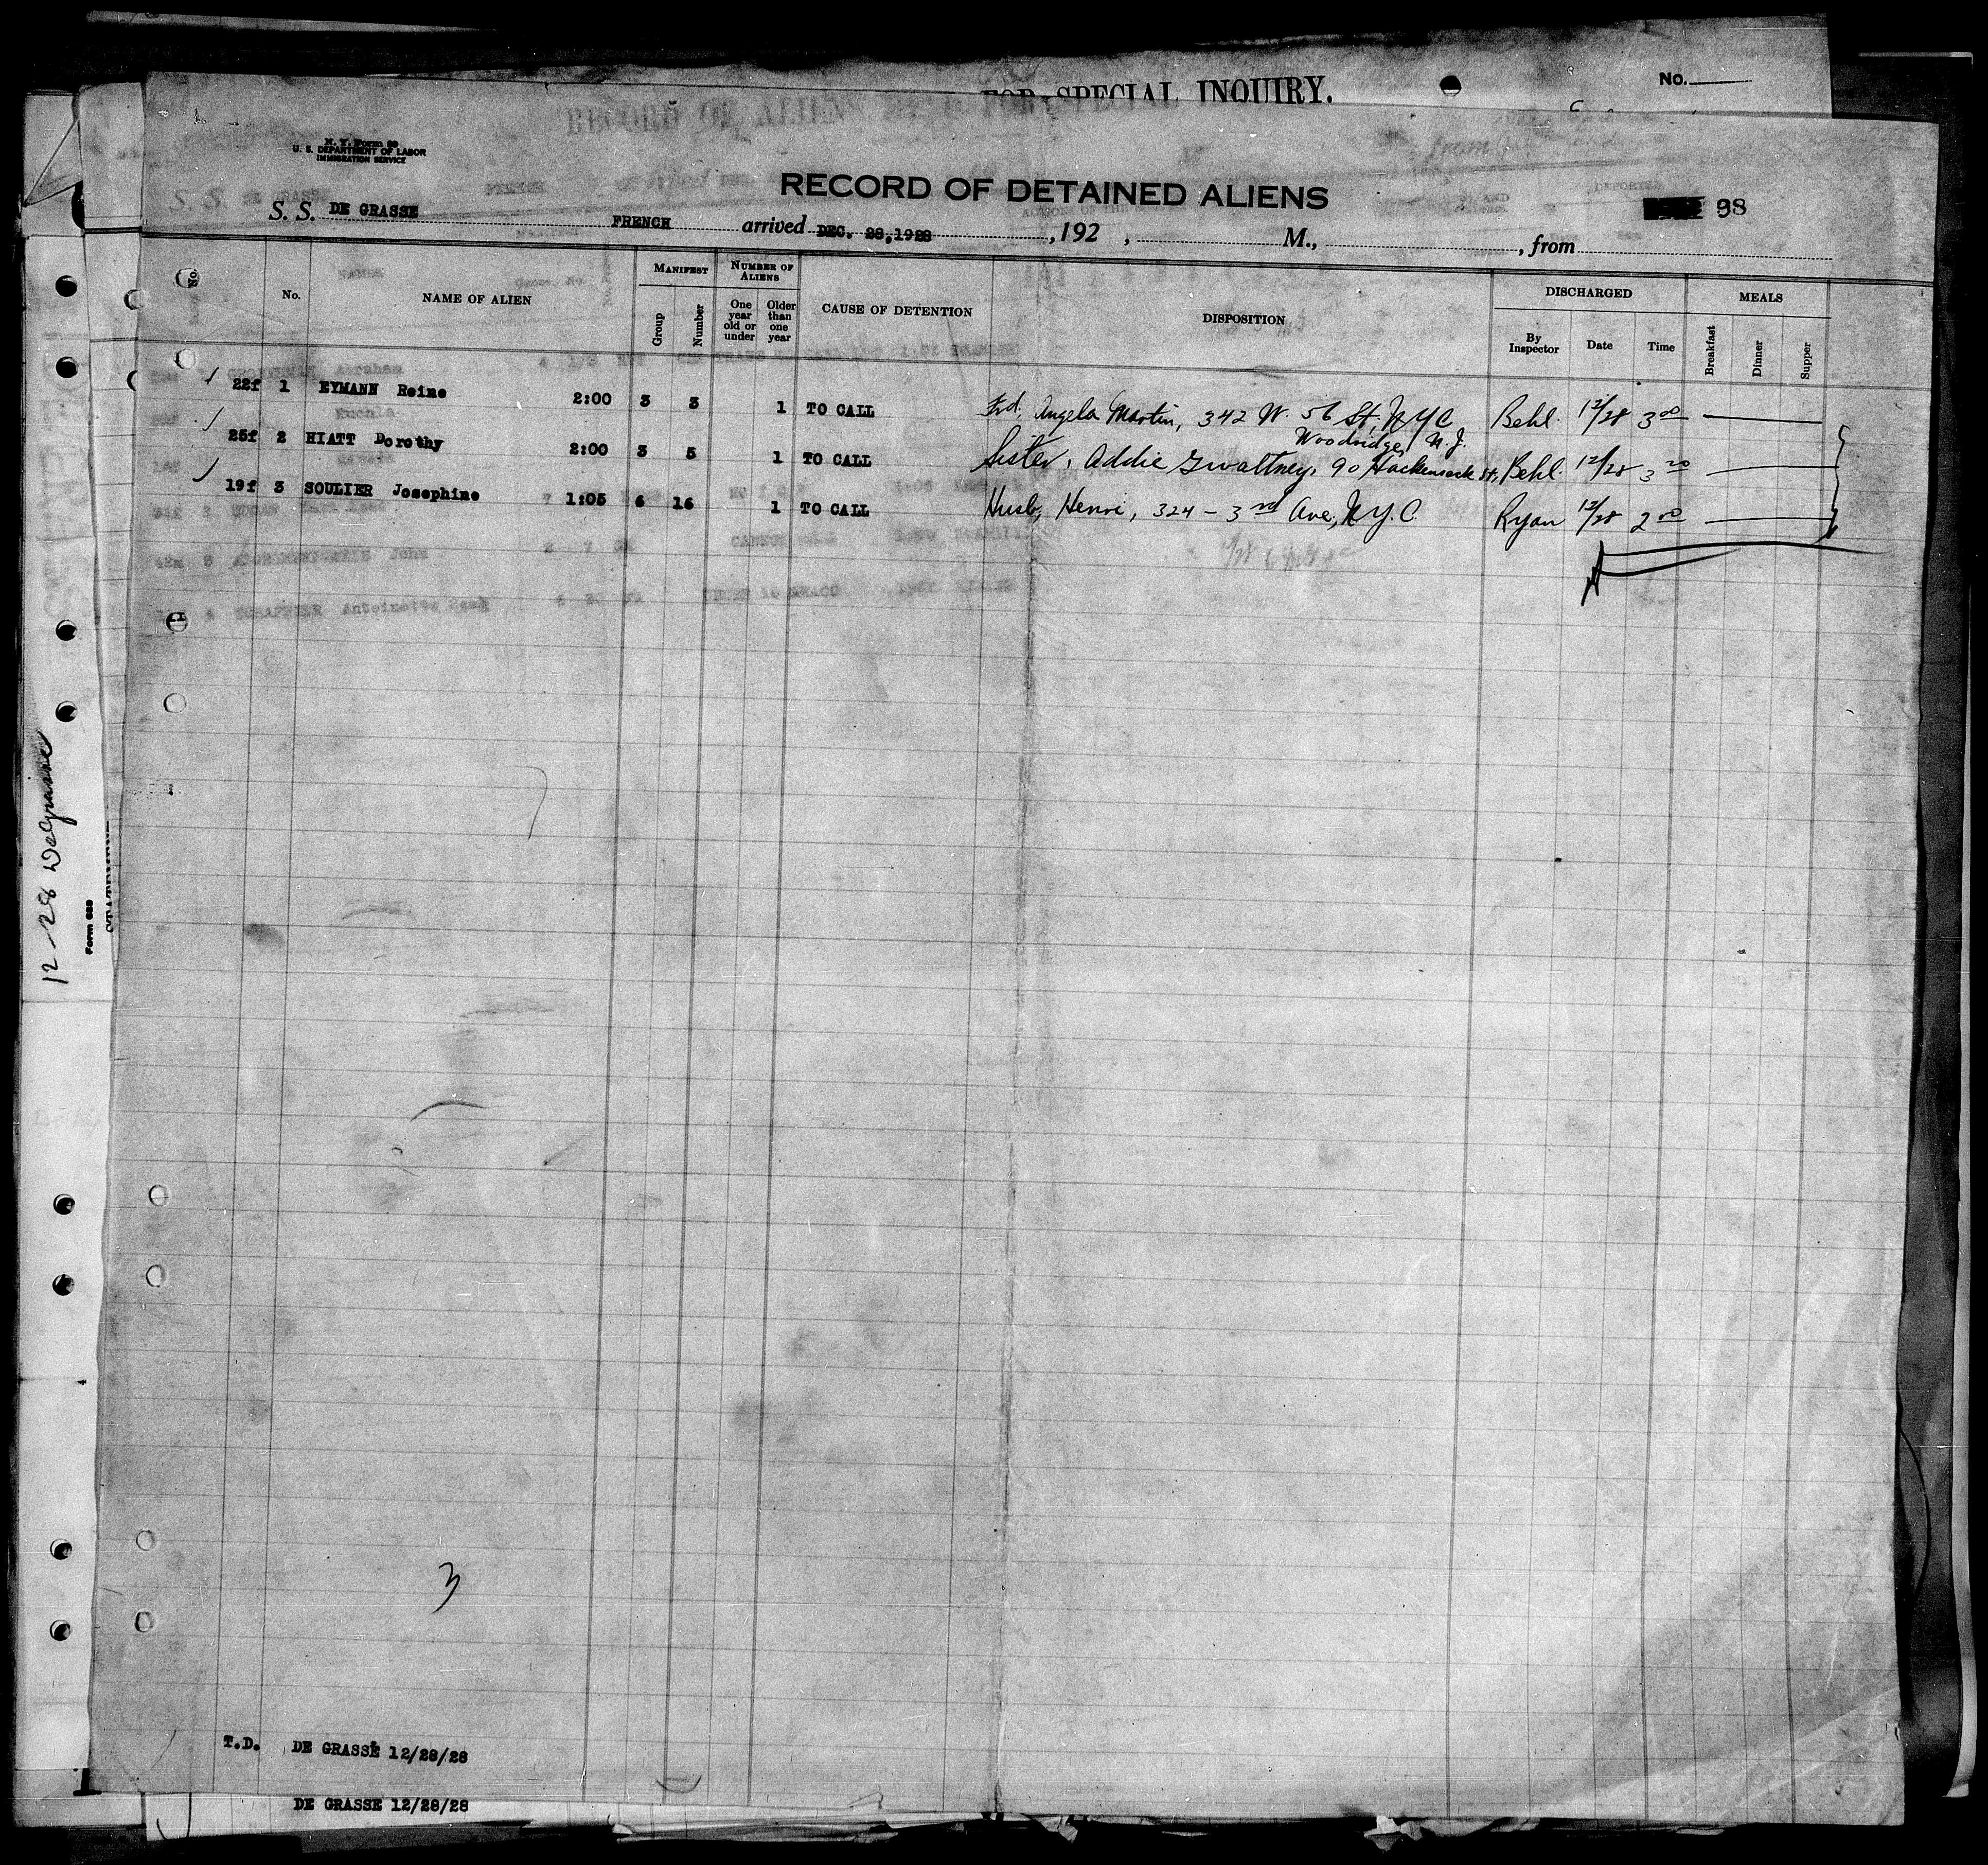 FOR SPECIAL INQUIRY.
No.
RECORD OF ALIENS HELD FOR
N. Y. Form 99
U. S. DEPARTMENT OF LABOR
IMMIGRATION SERVICE
RECORD OF DETAINED ALIENS
98
S. S. DE GRASSE FRENCH arrived DEC. 28,1928 ,192 , M., , from
No. NAME OF ALIEN MANIFEST Group Number NUMBER OF ALIENS One year old or under Older than one year CAUSE OF DETENTION DISPOSITION DISCHARGED By Inspector Date Time MEALS Breakfast Dinner Supper
22f 1 EYMANN Reine 2:00 3 3 1 TO CALL Frd. Angela Martin, 342 W. 56 St, NYC Behl. 12/28 3 00
25f 2 HIATT Dorothy 2:00 3 5 1 TO CALL Sister, Addie Gwaltney, 90 Hackensack St, Woodridge, N.J. Behl. 12/28 3 20
19f 3 SOULIER Josephine 1:05 6 16 1 TO CALL Husb, Henri, 324 - 3rd Ave, N.Y.C. Ryan 12/28 2 00
12-28 DeGrasse
Form 689
3
T.D. DE GRASSE 12/28/28
DE GRASSE 12/28/28